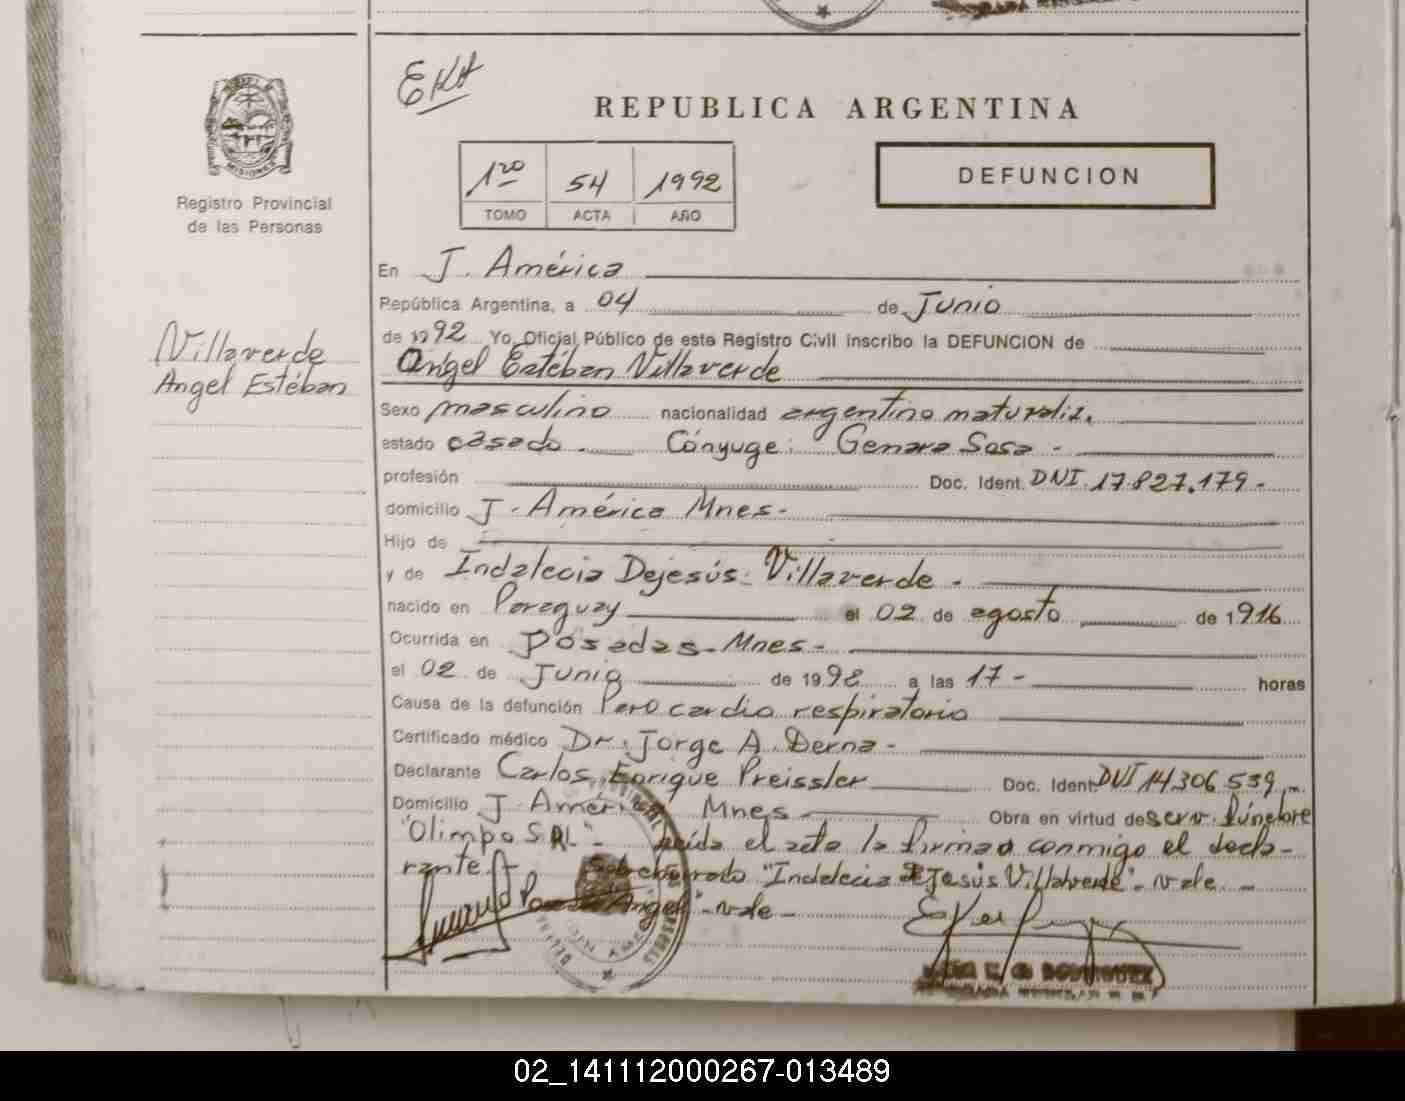 EKA
REPUBLICA ARGENTINA
MISIONES
1ro 54 1992
TOMO ACTA AÑO
DEFUNCION
Registro Provincial
de las Personas
En J. América
República Argentina, a 04 de Junio
de 1992 Yo, Oficial Público de este Registro Civil inscribo la DEFUNCION de
Angel Estéban Villaverde
Villaverde
Angel Estéban
Sexo masculino nacionalidad argentino naturaliz.
estado casado. Cónyuge: Genara Sosa -
profesión Doc. Ident. DNI. 17.827.179-
domicilio J. América Mnes-
Hijo de
y de Indalecia Dejesús Villaverde.
nacido en Paraguay el 02 de agosto de 1916
Ocurrida en Posadas-Mnes-
el 02 de Junio de 1992 a las 17- horas
Causa de la defunción Paro cardio respiratorio
Certificado médico Dr. Jorge A. Derna-
Declarante Carlos Enrique Preissler Doc. Ident. DNI 14.306.539
Domicilio J. América Mnes- Obra en virtud de serv. fúnebre
"Olimpo SRL"- Leída el acta la firman conmigo el decla-
rante. Sobreborrado "Indalecia Dejesús Villaverde"- vale-
Angel"- vale-
02_141112000267-013489